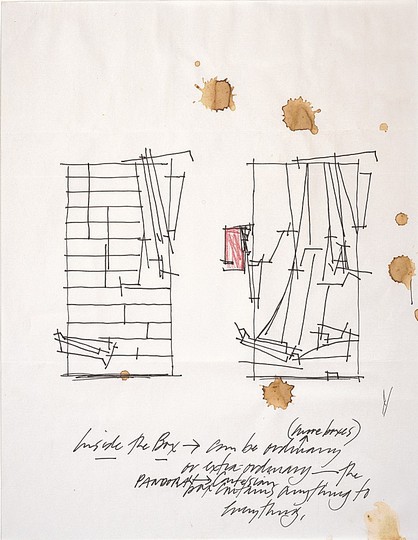 (more boxes)
Inside the Box → can be ordinary
or extra ordinary — the
PANDORA → Cartesian
box contains anything to
Everything.